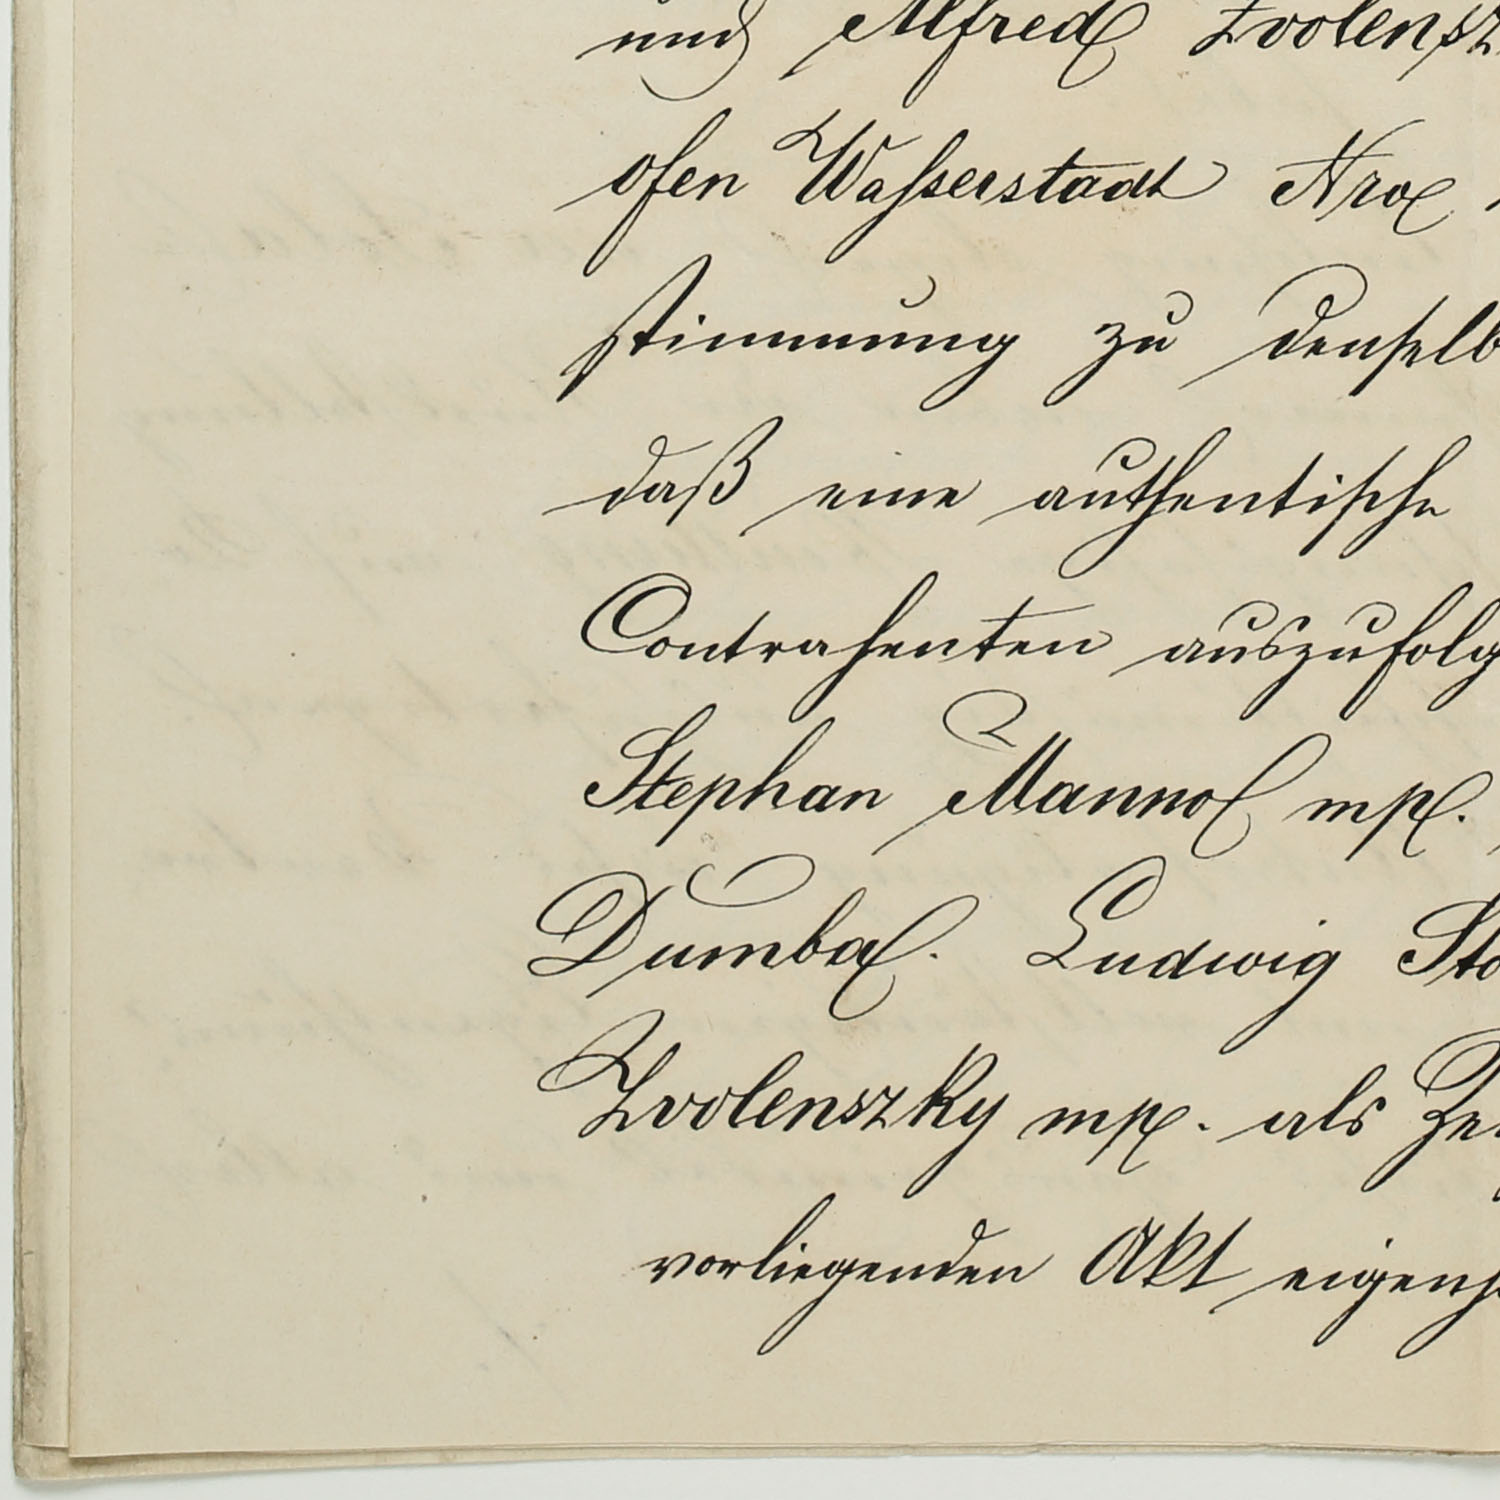 und Alfred Zvolensz
ofen Wasserstadt Nro
stimmung zu denselb
daß eine authentische
Contrahenten auszufolg
Stephan Manno mp.
Dumba. Ludwig Sto
Zvolenszky mp. als Ze
vorliegenden Akt eigenh